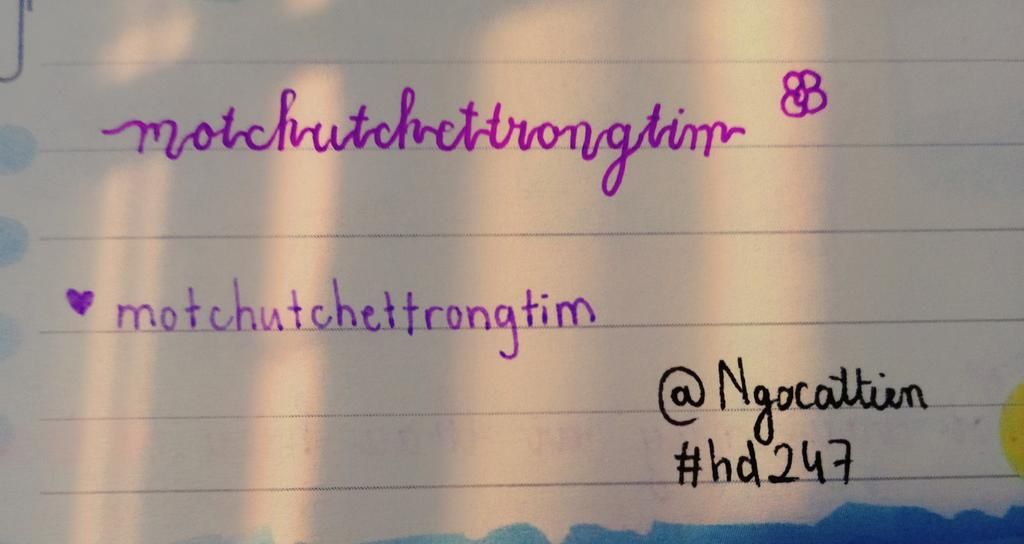 motchutchettrongtim
motchutchettrongtim
@Ngocattien
#hd247